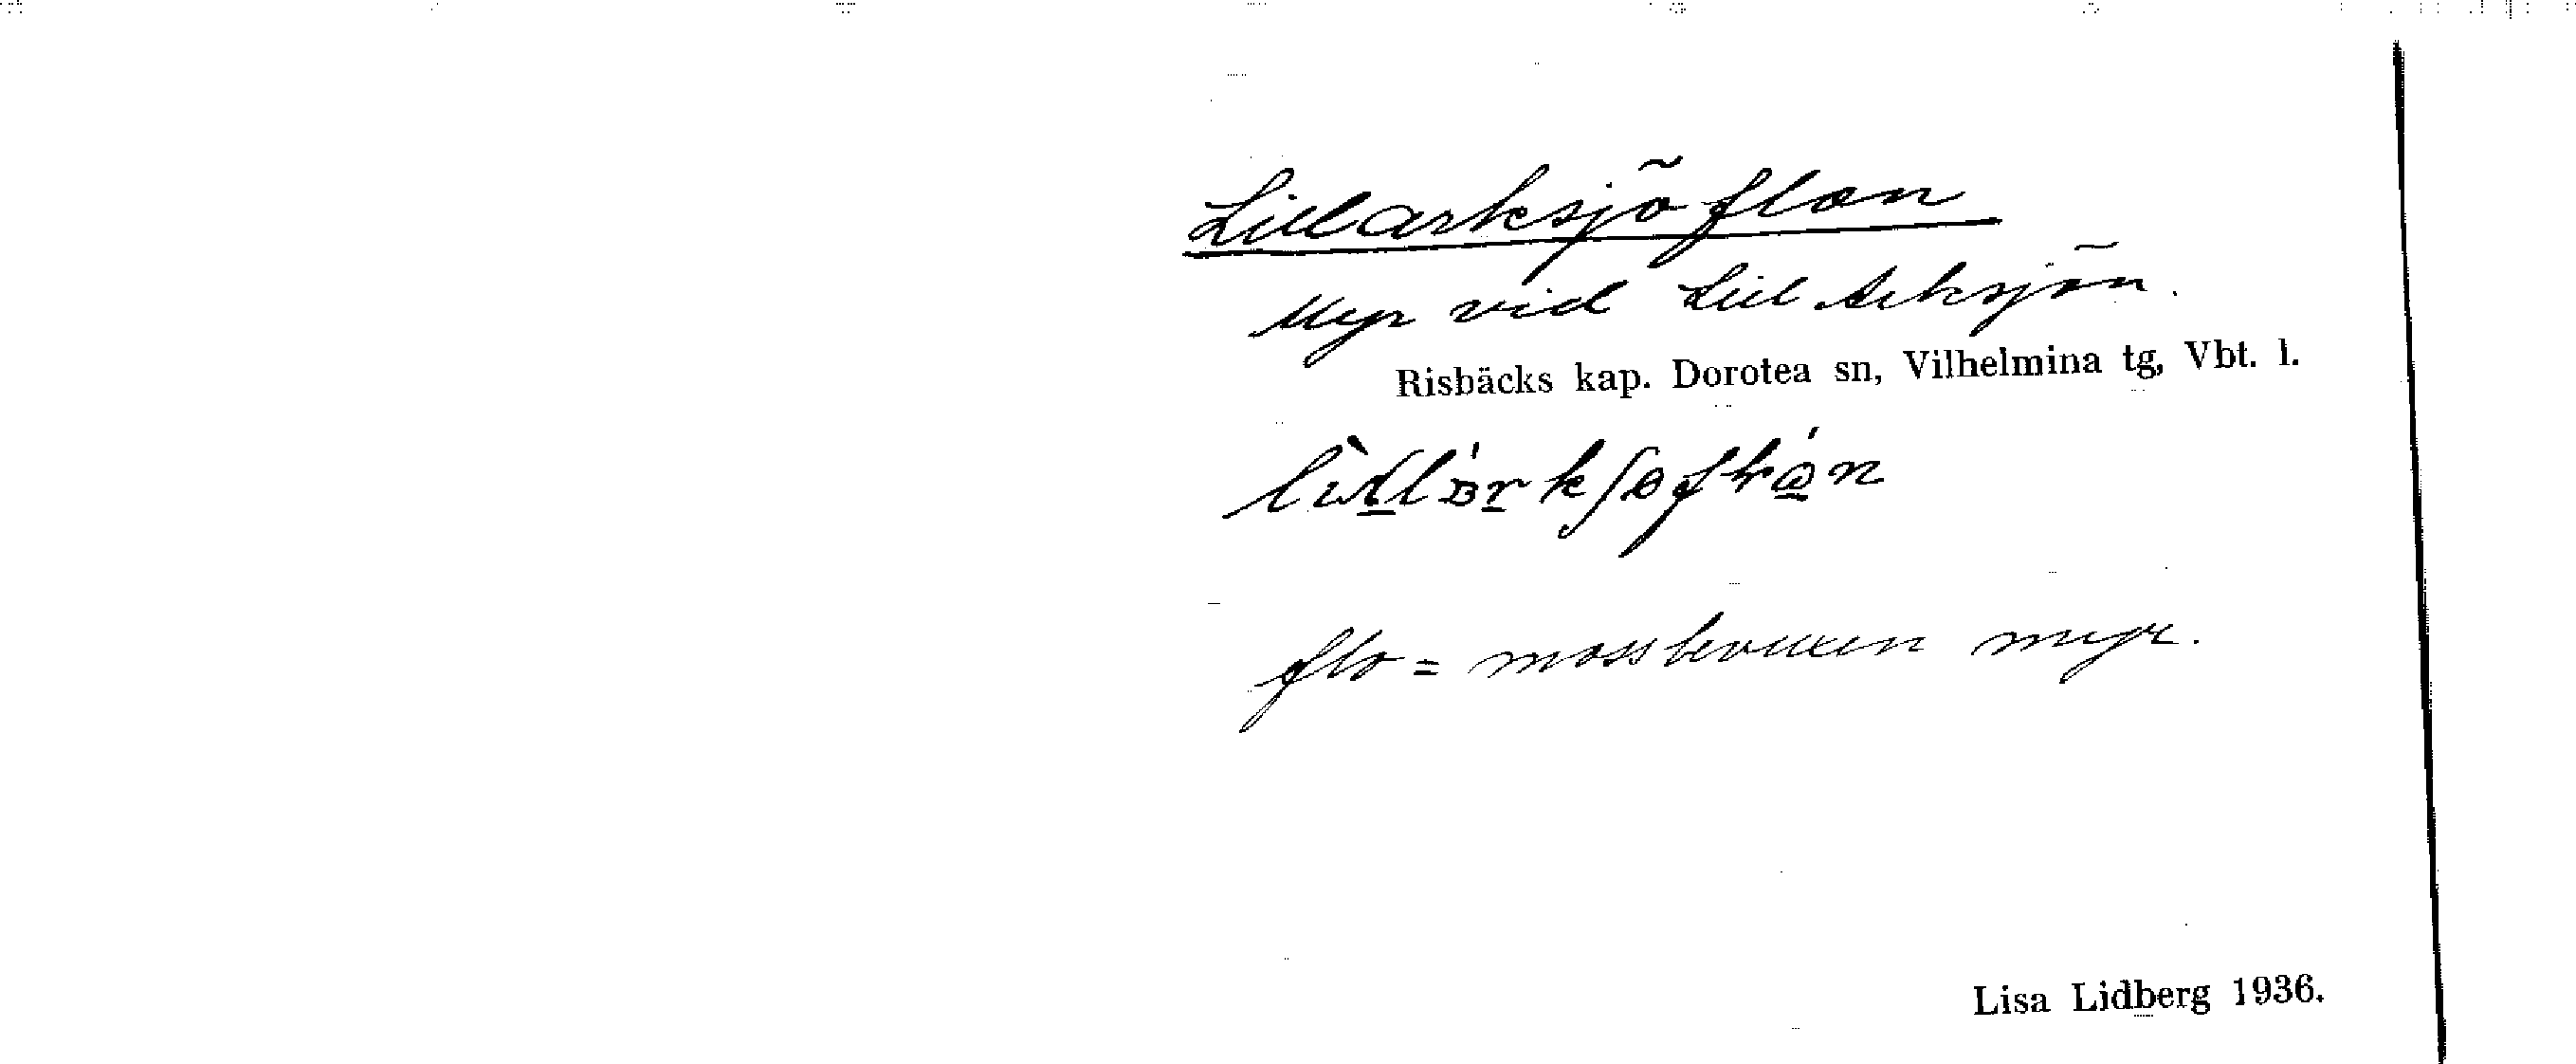 Lillarksjöflon
Myr vid Lill Arksjön.
Risbäcks kap. Dorotea sn, Vilhelmina tg, Vbt. l.
flo = mossbevuxen myr.
Lisa Lidberg 1936.